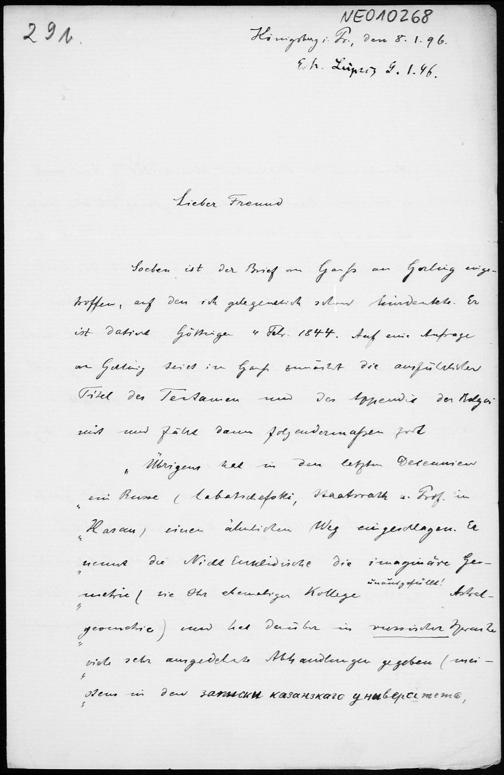 NE010268
291.
Königsberg i. Pr., den 8. 1. 96.
Erh. Leipzig 9. 1. 96.
Lieber Freund
Soeben ist der Brief von Gauß an Gerling einge-
troffen, auf den ich gelegentlich schon hindeutete. Er
ist datirt Göttingen 4 Febr. 1844. Auf eine Anfrage
von Gerling theilt ihm Gauß zunächst die ausführlichen
Titel des Tentamen und des Appendix der Bolyai
mit und fährt dann folgendermaßen fort
„Übrigens hat in den letzten Decennien
„ein Russe (Lobatschefski, Staatsrath u. Prof. in
„Kasan) einen ähnlichen Weg eingeschlagen. Er
„nennt die Nicht Euklidische die imaginäre Geo-
„metrie (wie Ihr ehemaliger Kollege unausgefüllt! Astral-
„geometrie) und hat darüber in russischer Sprache
„viele sehr ausgedehnte Abhandlungen gegeben (mei-
„stens in den записки казанскаго университета,